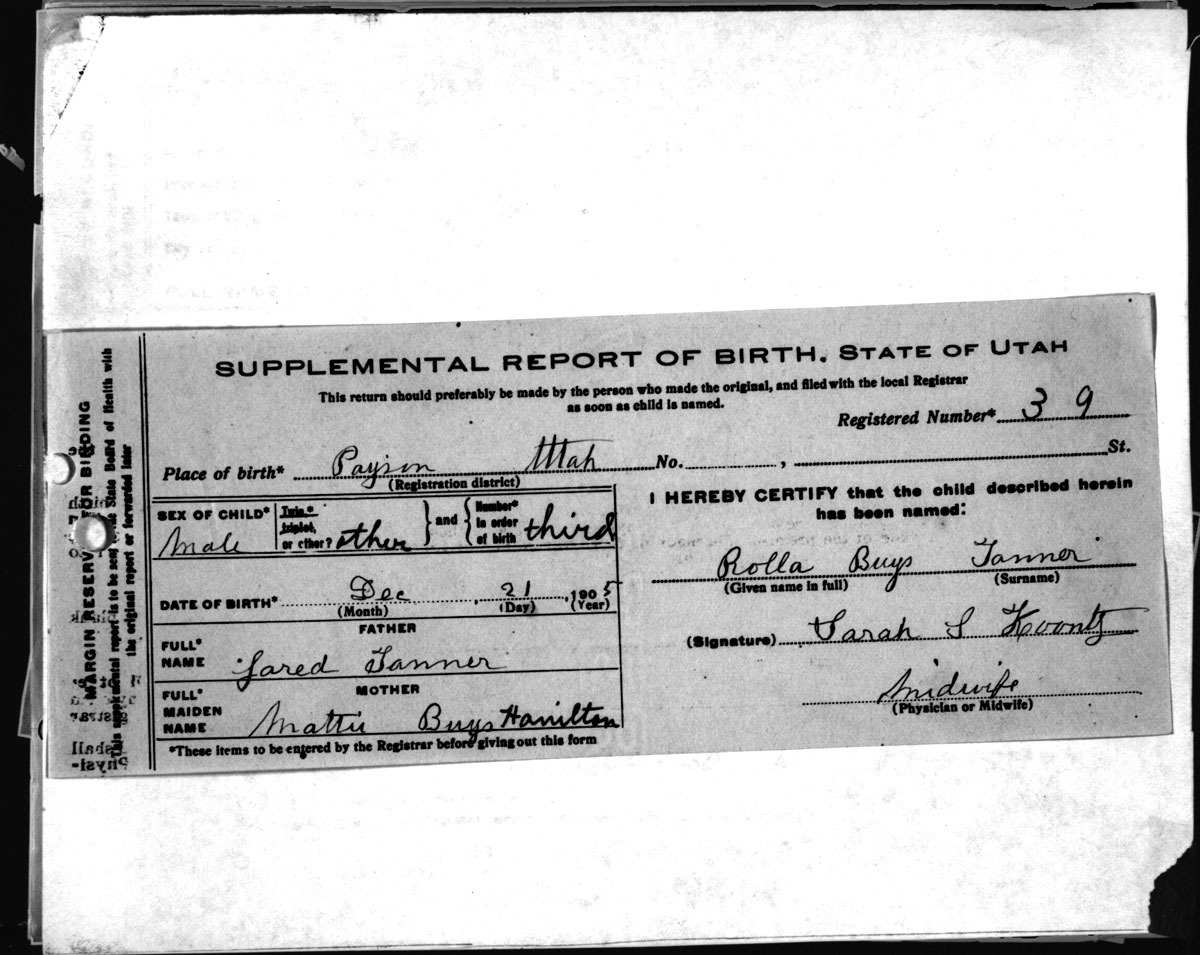 SUPPLEMENTAL REPORT OF BIRTH. STATE OF UTAH
This return should preferably be made by the person who made the original, and filed with the local Registrar
as soon as child is named.
Registered Number* 39
Place of birth* Payson Utah No. , St.
(Registration district)
SEX OF CHILD* Male
Twin,*
triplet,
or other? other
and
Number*
in order
of birth third
DATE OF BIRTH* Dec 21, 1905
(Month) (Day) (Year)
FATHER
FULL*
NAME Jared Tanner
MOTHER
FULL*
MAIDEN
NAME Mattie Buys Hamilton
*These items to be entered by the Registrar before giving out this form
I HEREBY CERTIFY that the child described herein
has been named:
Rolla Buys Tanner
(Given name in full) (Surname)
(Signature) Sarah S Koontz
Midwife
(Physician or Midwife)
MARGIN RESERV OR BINDING
This supplemental report is to be sent State Board of Health with
the original report or forwarded later